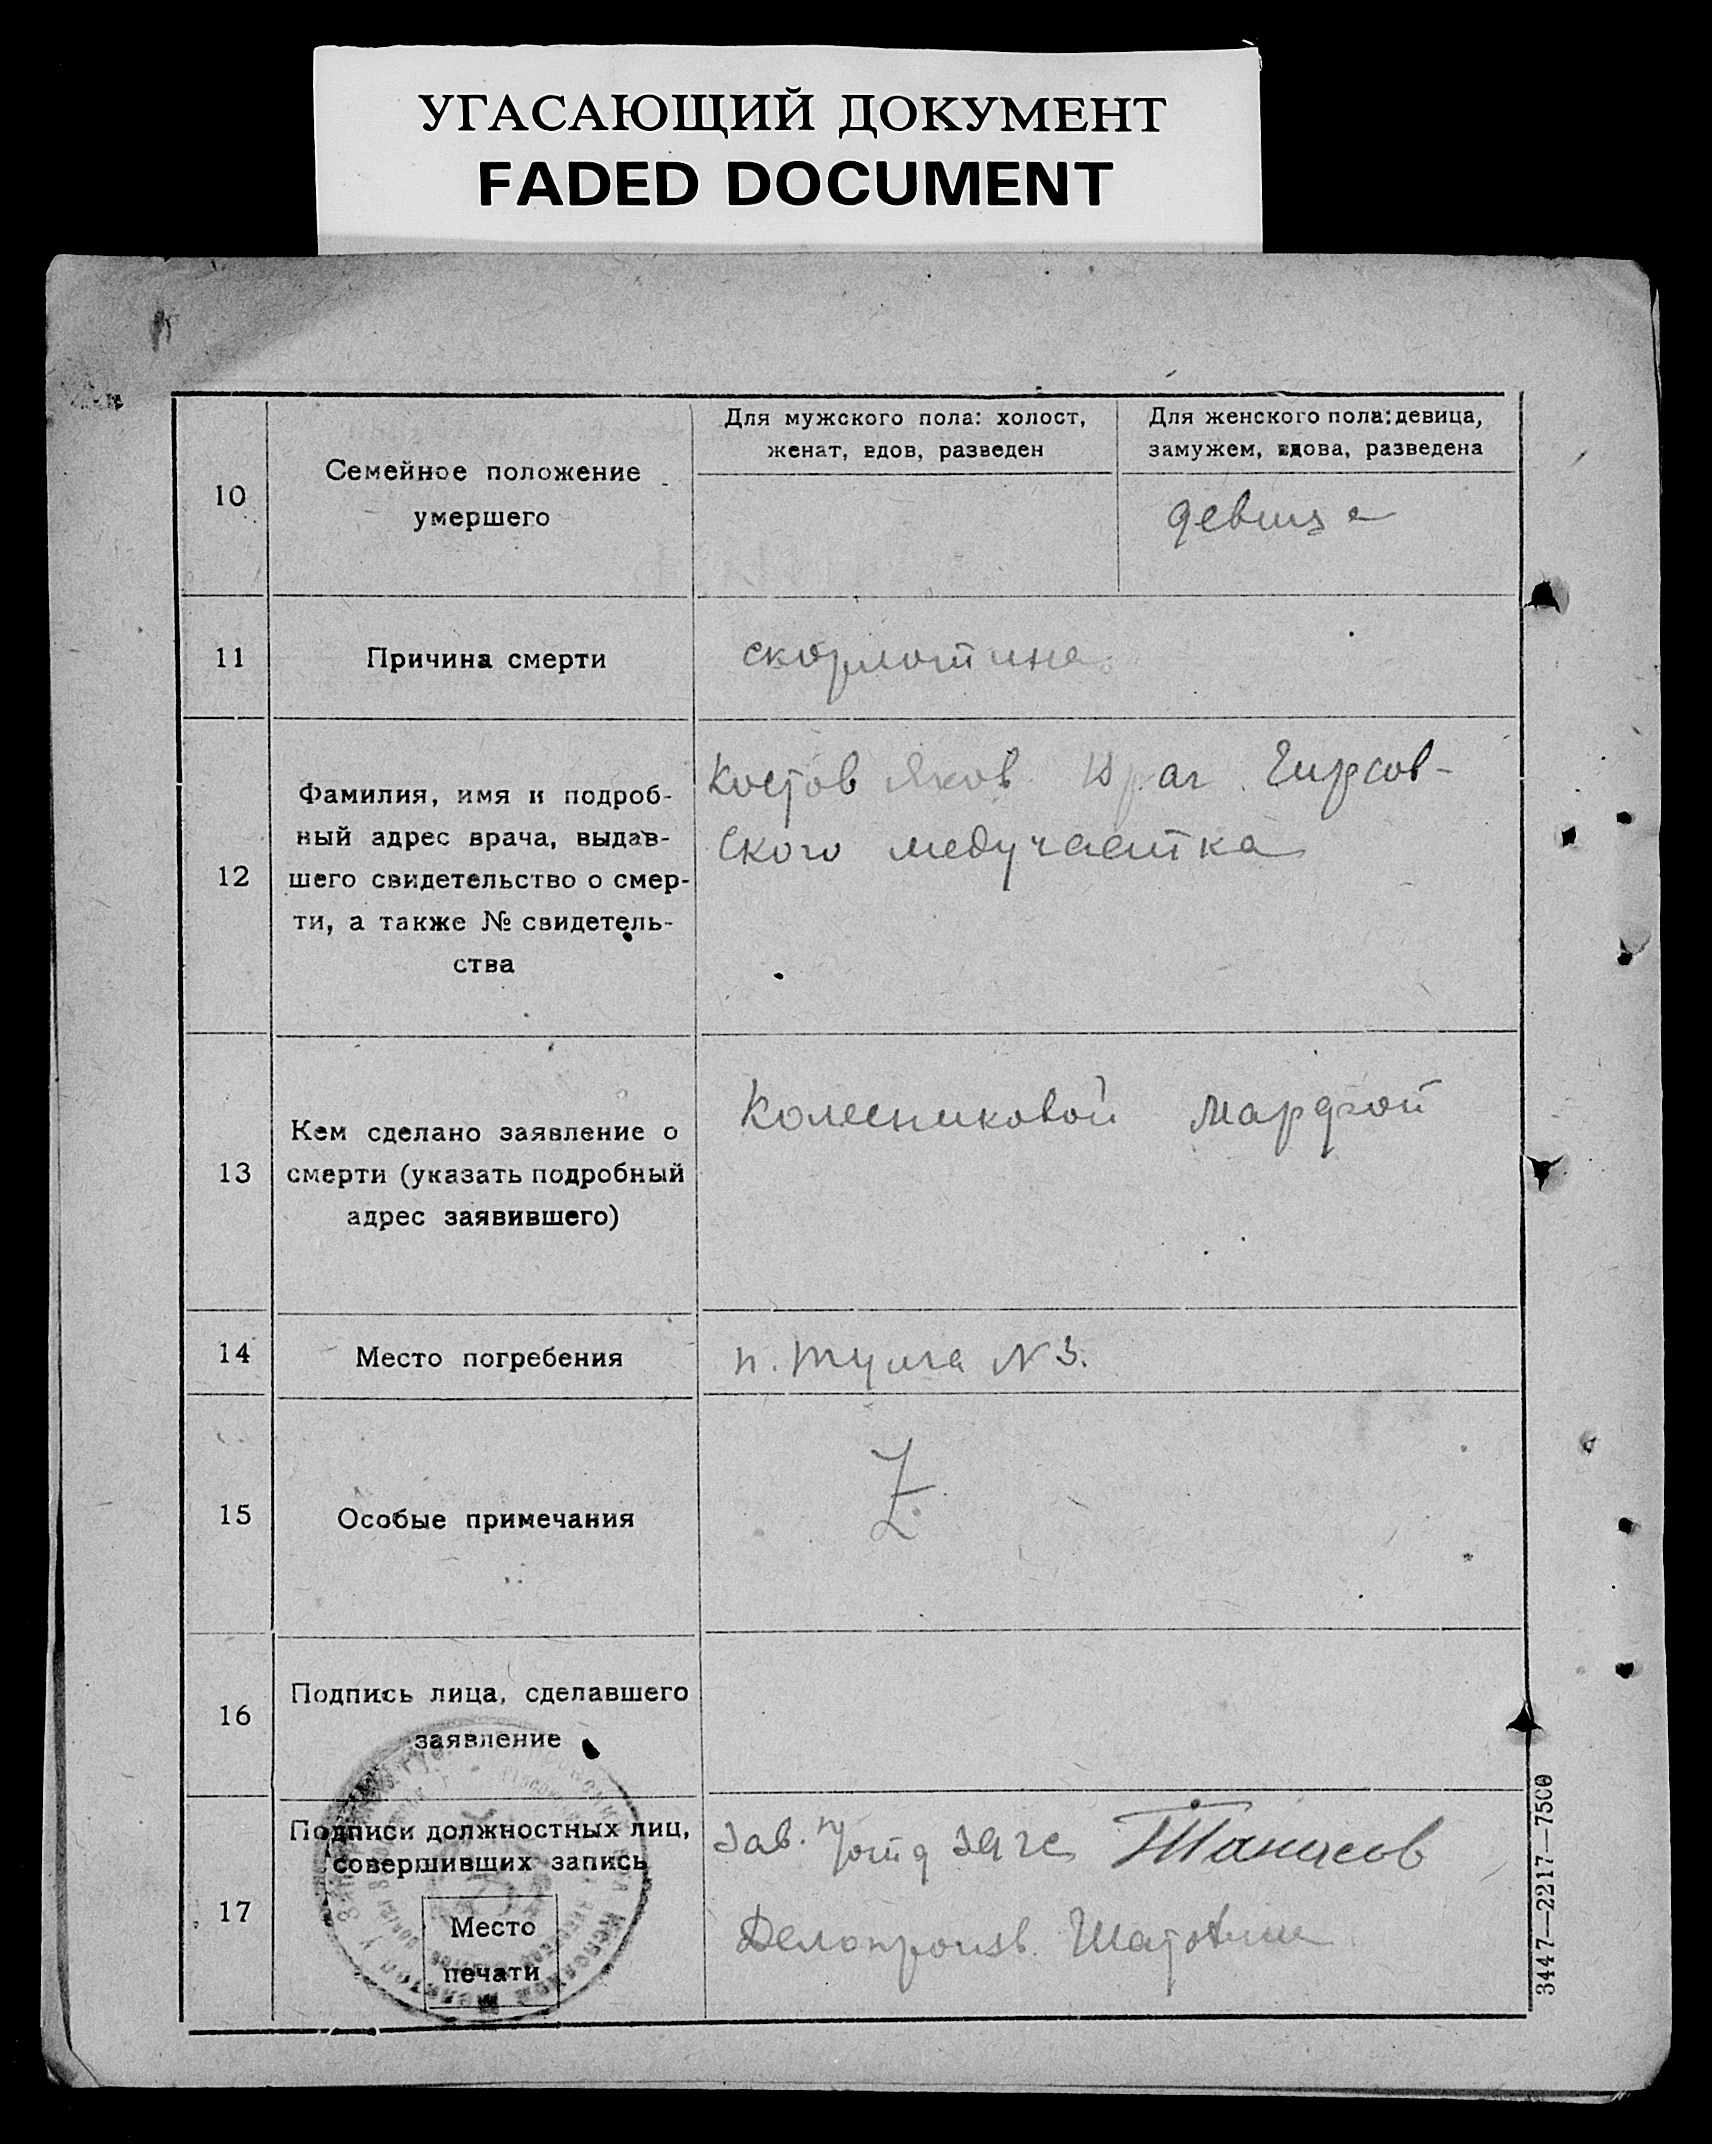 УГАСАЮЩИЙ ДОКУМЕНТ
FADED DOCUMENT
10
Семейное положение
умершего
Для мужского пола: холост,
женат, вдов, разведен
Для женского пола: девица,
замужем, вдова, разведена
девица
11
Причина смерти
скорлотина
12
Фамилия, имя и подроб-
ный адрес врача, выдав-
шего свидетельство о смер-
ти, а также № свидетель-
ства
Костов Яков Врач Гирсов-
ского медучастка
13
Кем сделано заявление о
смерти (указать подробный
адрес заявившего)
Колесниковой Марфой
14
Место погребения
п. N 3.
15
Особые примечания
Z
16
Подпись лица, сделавшего
заявление
17
Подписи должностных лиц,
совершивших запись
Место
печати
Зав. загс
Делопроизв.
3447—2217—7500